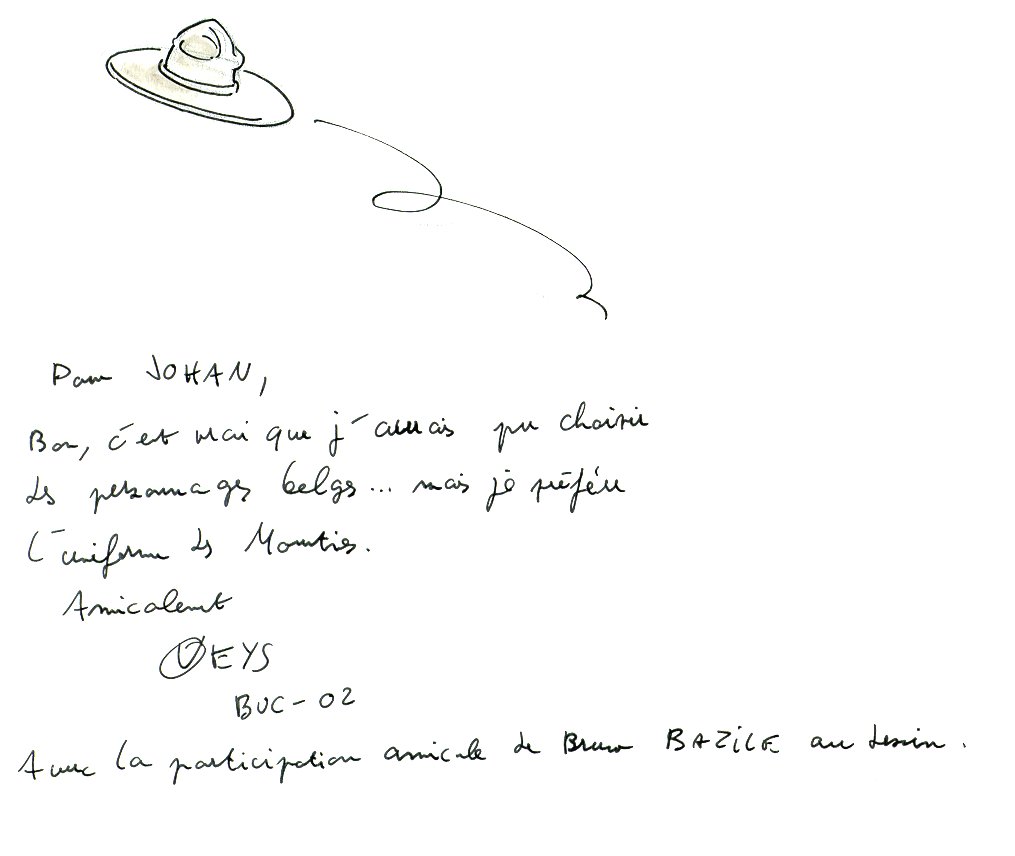 Pour JOHAN,
Bon, c'est vrai que j'aurais pu choisir
des personnages belges... mais je préfère
l'uniforme des Mounties.
Amicalement
VEYS
BUC-02
Avec la participation amicale de Bruno BAZILE au dessin.